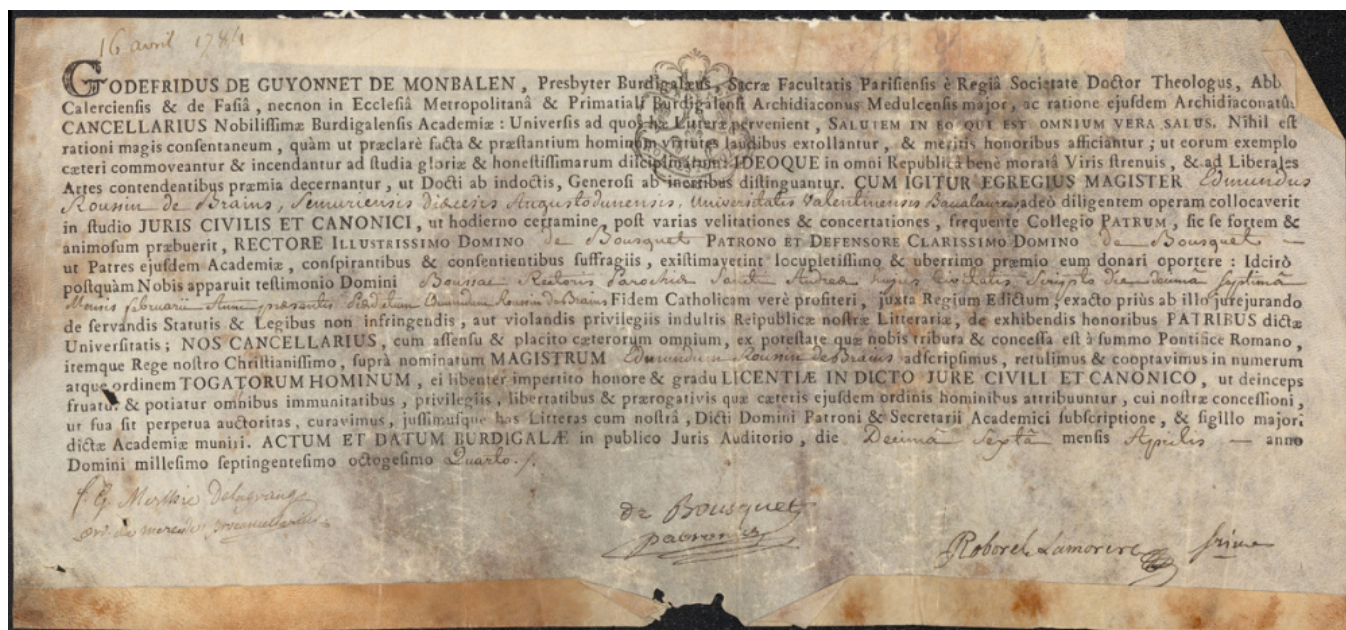 16 avril 1784
GODEFRIDUS DE GUYONNET DE MONBALEN, Presbyter Burdigalæus, Sacræ Facultatis Parisiensis è Regiâ Societate Doctor Theologus, Abb
Calerciensis & de Fasiâ, necnon in Ecclesiâ Metropolitanâ & Primatiali Burdigalensi Archidiaconus Medulcensis major, ac ratione ejusdem Archidiaconatûs
CANCELLARIUS Nobilissimæ Burdigalensis Academiæ : Universis ad quos hæ Litteræ pervenient, SALUTEM IN EO QUI EST OMNIUM VERA SALUS. Nihil est
rationi magis consentaneum, quàm ut præclarè facta & præstantium hominum virtutes laudibus extollantur, & meritis honoribus afficiantur ; ut eorum exemplo
cæteri commoveantur & incendantur ad studia gloriæ & honestissimarum disciplinarum : IDEOQUE in omni Republicâ benè moratâ Viris strenuis, & ad Liberales
Artes contendentibus præmia decernantur, ut Docti ab indoctis, Generosi ab inertibus distinguantur. CUM IGITUR EGREGIUS MAGISTER Edmundus
Roussin de Brains, Semuriensis diæcesis Augustodunensis, Universitatis Valentinensis Baccalaureus, adeò diligentem operam collocaverit
in studio JURIS CIVILIS ET CANONICI, ut hodierno certamine, post varias velitationes & concertationes, frequente Collegio PATRUM, sic se fortem &
animosum præbuerit, RECTORE ILLUSTRISSIMO DOMINO de Bousquet PATRONO ET DEFENSORE CLARISSIMO DOMINO de Bousquet —
ut Patres ejusdem Academiæ, conspirantibus & consentientibus suffragiis, existimaverint locupletissimo & uberrimo præmio eum donari oportere : Idcirò
postquàm Nobis apparuit testimonio Domini Boussac Rectoris Parochiæ Sancti Andreæ hujus Civitatis Scripto die decimâ septimâ
Mensis februarii Anni præsentis, Prædictum Edmundum Roussin de Brains, Fidem Catholicam verè profiteri, juxta Regium Edictum, exacto priùs ab illo jurejurando
de servandis Statutis & Legibus non infringendis, aut violandis privilegiis indultis Reipublicæ nostræ Litterariæ, de exhibendis honoribus PATRIBUS dictæ
Universitatis ; NOS CANCELLARIUS, cum assensu & placito cæterorum omnium, ex potestate quæ nobis tributa & concessa est à summo Pontifice Romano,
itemque Rege nostro Christianissimo, suprà nominatum MAGISTRUM Edmundum Roussin de Brains adscripsimus, retulimus & cooptavimus in numerum
atque ordinem TOGATORUM HOMINUM, ei libenter impertito honore & gradu LICENTIÆ IN DICTO JURE CIVILI ET CANONICO, ut deinceps
fruatur & potiatur omnibus immunitatibus, privilegiis, libertatibus & prærogativis quæ cæteris ejusdem ordinis hominibus attribuuntur, cui nostræ concessioni,
ut sua sit perpetua auctoritas, curavimus, jussimusque has Litteras cum nostrâ, Dicti Domini Patroni & Secretarii Academici subscriptione, & sigillo majori
dictæ Academiæ muniri. ACTUM ET DATUM BURDIGALÆ in publico Juris Auditorio, die Decimâ Sextâ mensis Aprilis — anno
Domini millesimo septingentesimo octogesimo Quarto.
de Bousquet
patronus
Roborel Lamorere